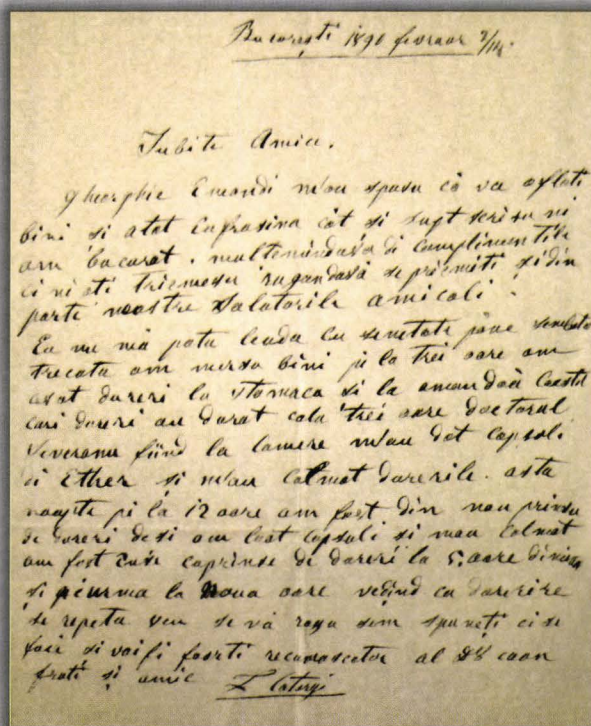 Bucoresti 1890 fevruar 2/14.
Iubite Amice.
Gheorghie Emandi m'au spusu că vă aflati
bini si atat Eufrosina cât si supt scrisu ni
am bucurat. multemindu-vă di complimentile
ci ni ati triemesu rugandavă se priemiti și din
parte noastre salutarile amicali.
Eu nu mă potu leuda cu senetate păne sembata
trecuta am mersu bini pi la trei oare am
avut dureri la stomacu si la amandoă coastă
cari dureri au durat cate trei oare doctorul
Severeanu fiind la Camere m'au dat capsuli
di Ether și m'au Calmat durerile. asta
noapte pi la 12 oare am fost din nou prinsu
de dureri desi am loat capsuli si mau Calmat
am fost cuprinse de dureri la 5. oare diminea
și pi urma la noua oare vedind ca dureriri
se repeta veu se vă rogu sem spuneți ci se
faci si voi fi foarti recunoscetor al DV
frati și amic
L Catargi